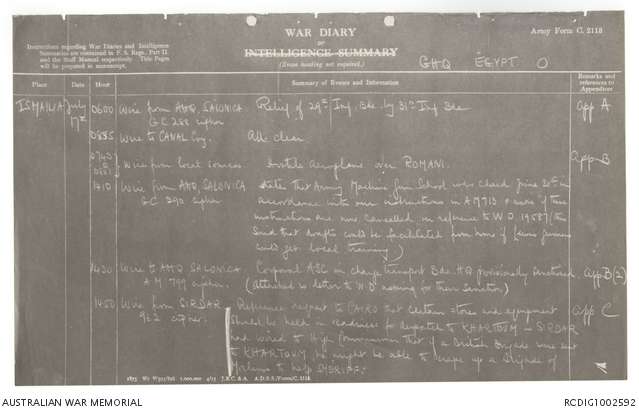 WAR DIARY
or
INTELLIGENCE SUMMARY
(Erase heading not required).
Army Form C. 2118
Instructions regarding War Diaries and Intelligence
Summaries are contained in F. S. Regs., Part II.
and the Staff Manual respectively. Title Pages
will be prepared in manuscript.
GHQ EGYPT O
Place
Date
Hour
Summary of Events and Information
Remarks and
references to
Appendices
ISMAILIA July 0600 Wire from AHQ, SALONICA Relief of 29th Inf. Bde. by 31st Inf Bde App A
GC 288 cipher
Wire to CANAL Coy. All clear.
Wire from local sources Hostile Aeroplane over ROMANI. App B
1410 Wire from AHQ, SALONICA States that Army Machine Gun School was closed June 20th in
GC 290 cipher accordance with our instructions in AM713 & asks if these
instructions are now cancelled in reference to W.O. 19587 (this
said that drafts could be facilitated from home if
could get local training)
1430 Wire to AHQ SALONICA Corporal ASC in charge transport Bde. HQ provisionally sanctioned. App B(2)
AM 799 cipher. (Attached is letter to W.O. asking for their sanction)
1450 Wire from SIRDAR Reference request to CAIRO that certain stores and equipment App C
962 cipher. should be held in readiness for despatch to KHARTOUM – SIRDAR
had wired to High Commissioner that if a British Brigade were sent
to KHARTOUM he might be able to scrape up a Brigade of
Moslems to help SHERIFF.
1875 Wt. W593/826 1,000,000 4/15 J.B.C. & A. A.D.S.S./Forms/C. 2118.
AUSTRALIAN WAR MEMORIAL
RCDIG1002592